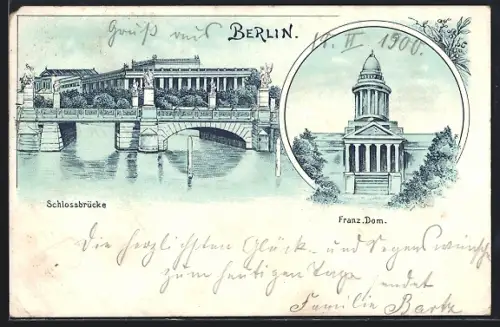 Gruß aus BERLIN.
17. II 1900.
Schlossbrücke
Franz. Dom.
Die herzlichsten Glück- und Segenswünsche
zum heutigen Tage sendet
Familie Bartz